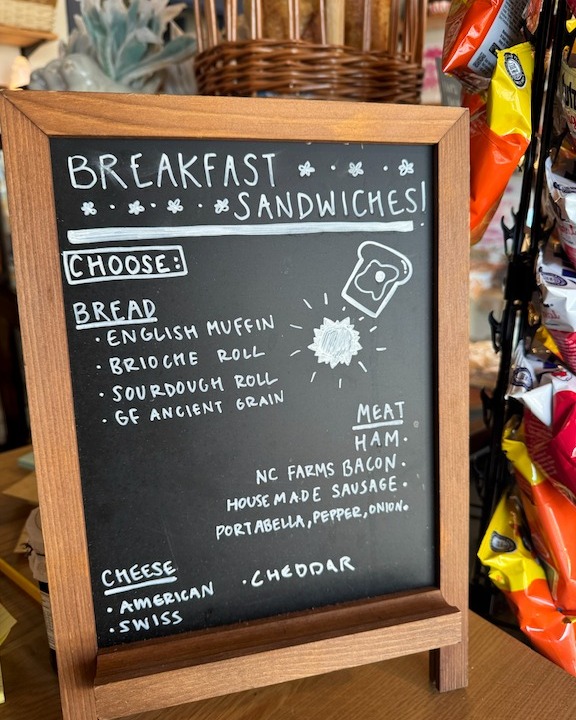 BREAKFAST
SANDWICHES!
CHOOSE:
BREAD
• ENGLISH MUFFIN
• BRIOCHE ROLL
• SOURDOUGH ROLL
• GF ANCIENT GRAIN
MEAT
HAM •
NC FARMS BACON •
HOUSEMADE SAUSAGE •
PORTABELLA, PEPPER, ONION •
CHEESE
• AMERICAN
• SWISS
• CHEDDAR